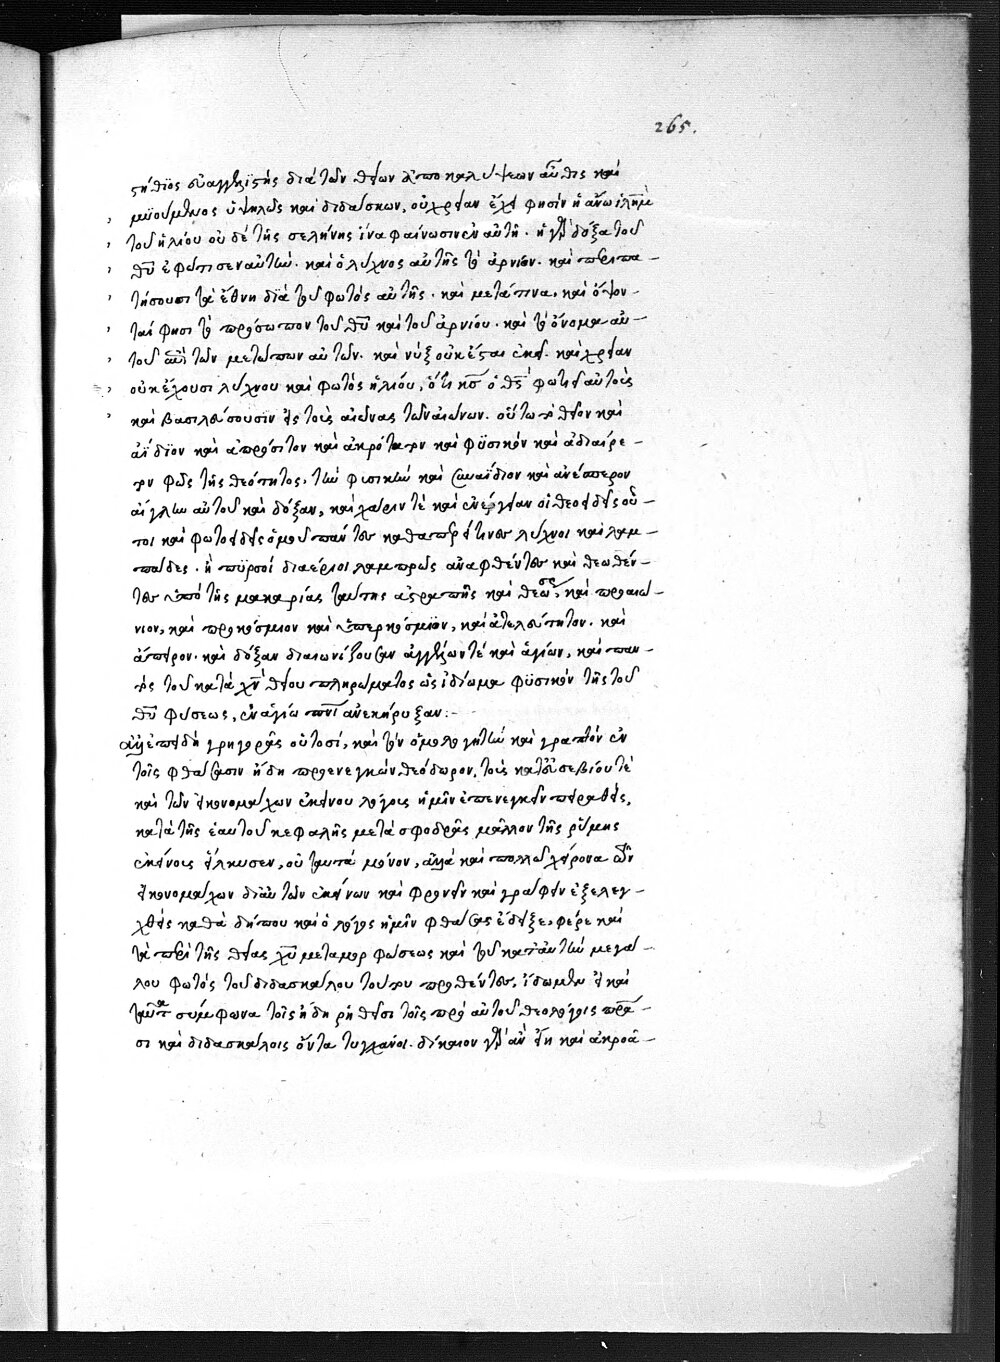 265.
τῆ θεῖος εὐαγγελιστὴς διὰ τῶν θείων ἀποκαλύψεων αὖθις καὶ
μυούμενος ὑψηλῶς καὶ διδάσκων, οὐ χρείαν ἔχει φησὶν ἡ ἄνω ἱλὴμ
τοῦ ἡλίου οὐδὲ τῆς σελήνης ἵνα φαίνωσιν ἐν αὐτῇ. ἡ γὰρ δόξα τοῦ
θυ ἐφώτισεν αὐτήν. καὶ ὁ λύχνος αὐτῆς τὸ ἀρνίον. καὶ περιπα-
τήσουσι τὰ ἔθνη διὰ τοῦ φωτὸς αὐτῆς. καὶ μετά τινα, καὶ ὄψον-
ταί φησι τὸ πρόσωπον τοῦ θυ καὶ τοῦ ἀρνίου. καὶ τὸ ὄνομα αὐ-
τοῦ ἐπὶ τῶν μετώπων αὐτῶν. καὶ νὺξ οὐκ ἔσται ἐκεῖ. καὶ χρείαν
οὐκ ἔχουσι λύχνου καὶ φωτὸς ἡλίου, ὅτι κς ὁ θς φωτιεῖ αὐτοὺς
καὶ βασιλεύσουσιν εἰς τοὺς αἰῶνας τῶν αἰώνων. οὕτω τὸ θεῖον καὶ
ἀΐδιον καὶ ἀπρόσιτον καὶ ἀκρότατον καὶ φυσικὸν καὶ ἀδιαίρε-
τον φῶς τῆς θεότητος, τὴν φυσικὴν καὶ συναΐδιον καὶ ἀνέσπερον
αἴγλην αὐτοῦ καὶ δόξαν, καὶ χάριν τὲ καὶ ἐνέργειαν οἱ θεοειδεῖς οὗ-
τοι καὶ φωτοειδεῖς ὁμοῦ πάντες καθαπερεί τινες λύχνοι καὶ λαμ-
πάδες. ἢ πυρσοὶ διαέριοι λαμπρῶς ἀναφθέντες καὶ θεωθέν-
τες ὑπὸ τῆς μακαρίας ταύτης ἀστραπῆς καὶ θεώσεως, καὶ προαιώ-
νιον, καὶ προκόσμιον καὶ ὑπερκόσμιον, καὶ ἀτελεύτητον. καὶ
ἄπειρον. καὶ δόξαν διαιωνίζουσαν ἀγγέλων τὲ καὶ ἁγίων, καὶ παν-
τὸς τοῦ κατὰ χν θείου πληρώματος ὡς ἰδίωμα φυσικὸν τῆς τοῦ
θυ φύσεως, ἐν ἁγίω πνι ἀνεκήρυξαν:-
ἀλλ' ἐπειδὴ γρηγορᾶς οὑτοσί, καὶ τὸν ὁμολογητὴν καὶ γραπτὸν ἐν
τοῖς φθάσασιν ἤδη προενεγκὼν θεόδωρον, τοὺς κατ' εὐσεβίου τὲ
καὶ τῶν εἰκονομάχων ἐκείνου λόγοις ἡμῖν ἐπενεγκεῖν πειραθεὶς,
κατὰ τῆς ἑαυτοῦ κεφαλῆς μετὰ σφοδρᾶς μᾶλλον τῆς ῥύμης
ἐκείνοις εἵλκυσεν, οὐ ταυτὰ μόνον, ἀλλὰ καὶ πολλῶ χείρονα τῶν
εἰκονομάχων διὰ τῶν ἐκείνων καὶ φρονεῖν καὶ γράφειν ἐξελεγ-
χθεὶς καθὰ δήπου καὶ ὁ λόγος ἡμῖν φθάσας ἔδειξε, φέρε καὶ
τὰ περὶ τῆς θείας χυ μεταμορφώσεως καὶ τοῦ κατ' αὐτὴν μεγά-
λου φωτὸς τοῦ διδασκάλου τούτου προθέντες, ἴδωμεν εἰ καὶ
ταῦτα σύμφωνα τοῖς ἤδη ῥηθεῖσι τοῖς πρὸ αὐτοῦ θεολόγοις πρᾶ-
σι καὶ διδασκάλοις ὄντα τυγχάνοι. δίκαιον γὰρ ἂν εἴη καὶ ἀκροᾶ-